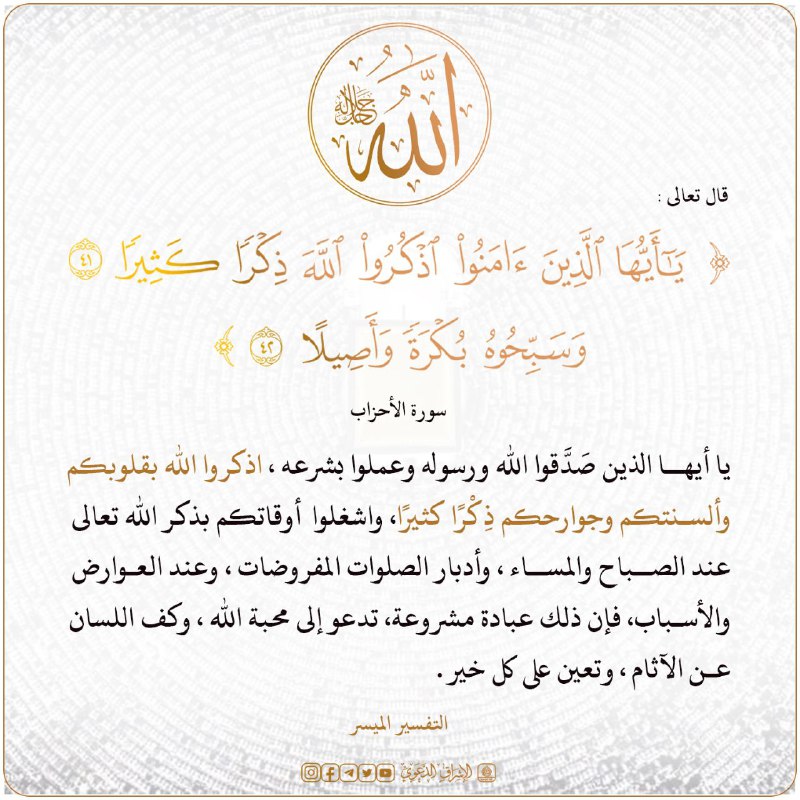 الله جل جلاله
قال تعالى :
﴿ يَٰٓأَيُّهَا ٱلَّذِينَ ءَامَنُوا۟ ٱذْكُرُوا۟ ٱللَّهَ ذِكْرًا كَثِيرًا ٤١
وَسَبِّحُوهُ بُكْرَةً وَأَصِيلًا ٤٢ ﴾
سورة الأحزاب
يا أيهـــا الذين صَدَّقوا الله ورسوله وعملوا بشرعه ، اذكروا الله بقلوبكم
وألسـنتكم وجوارحكم ذِكْرًا كثيرًا، واشغلوا أوقاتكم بذكر الله تعالى
عند الصـــباح والمســـاء ، وأدبار الصلوات المفروضات ، وعند العـوارض
والأسـباب، فإن ذلك عبادة مشروعة، تدعو إلى محبة الله ، وكف اللسان
عـن الآثام ، وتعين على كل خير .
التفسير الميسر
الإشراق الدعوي